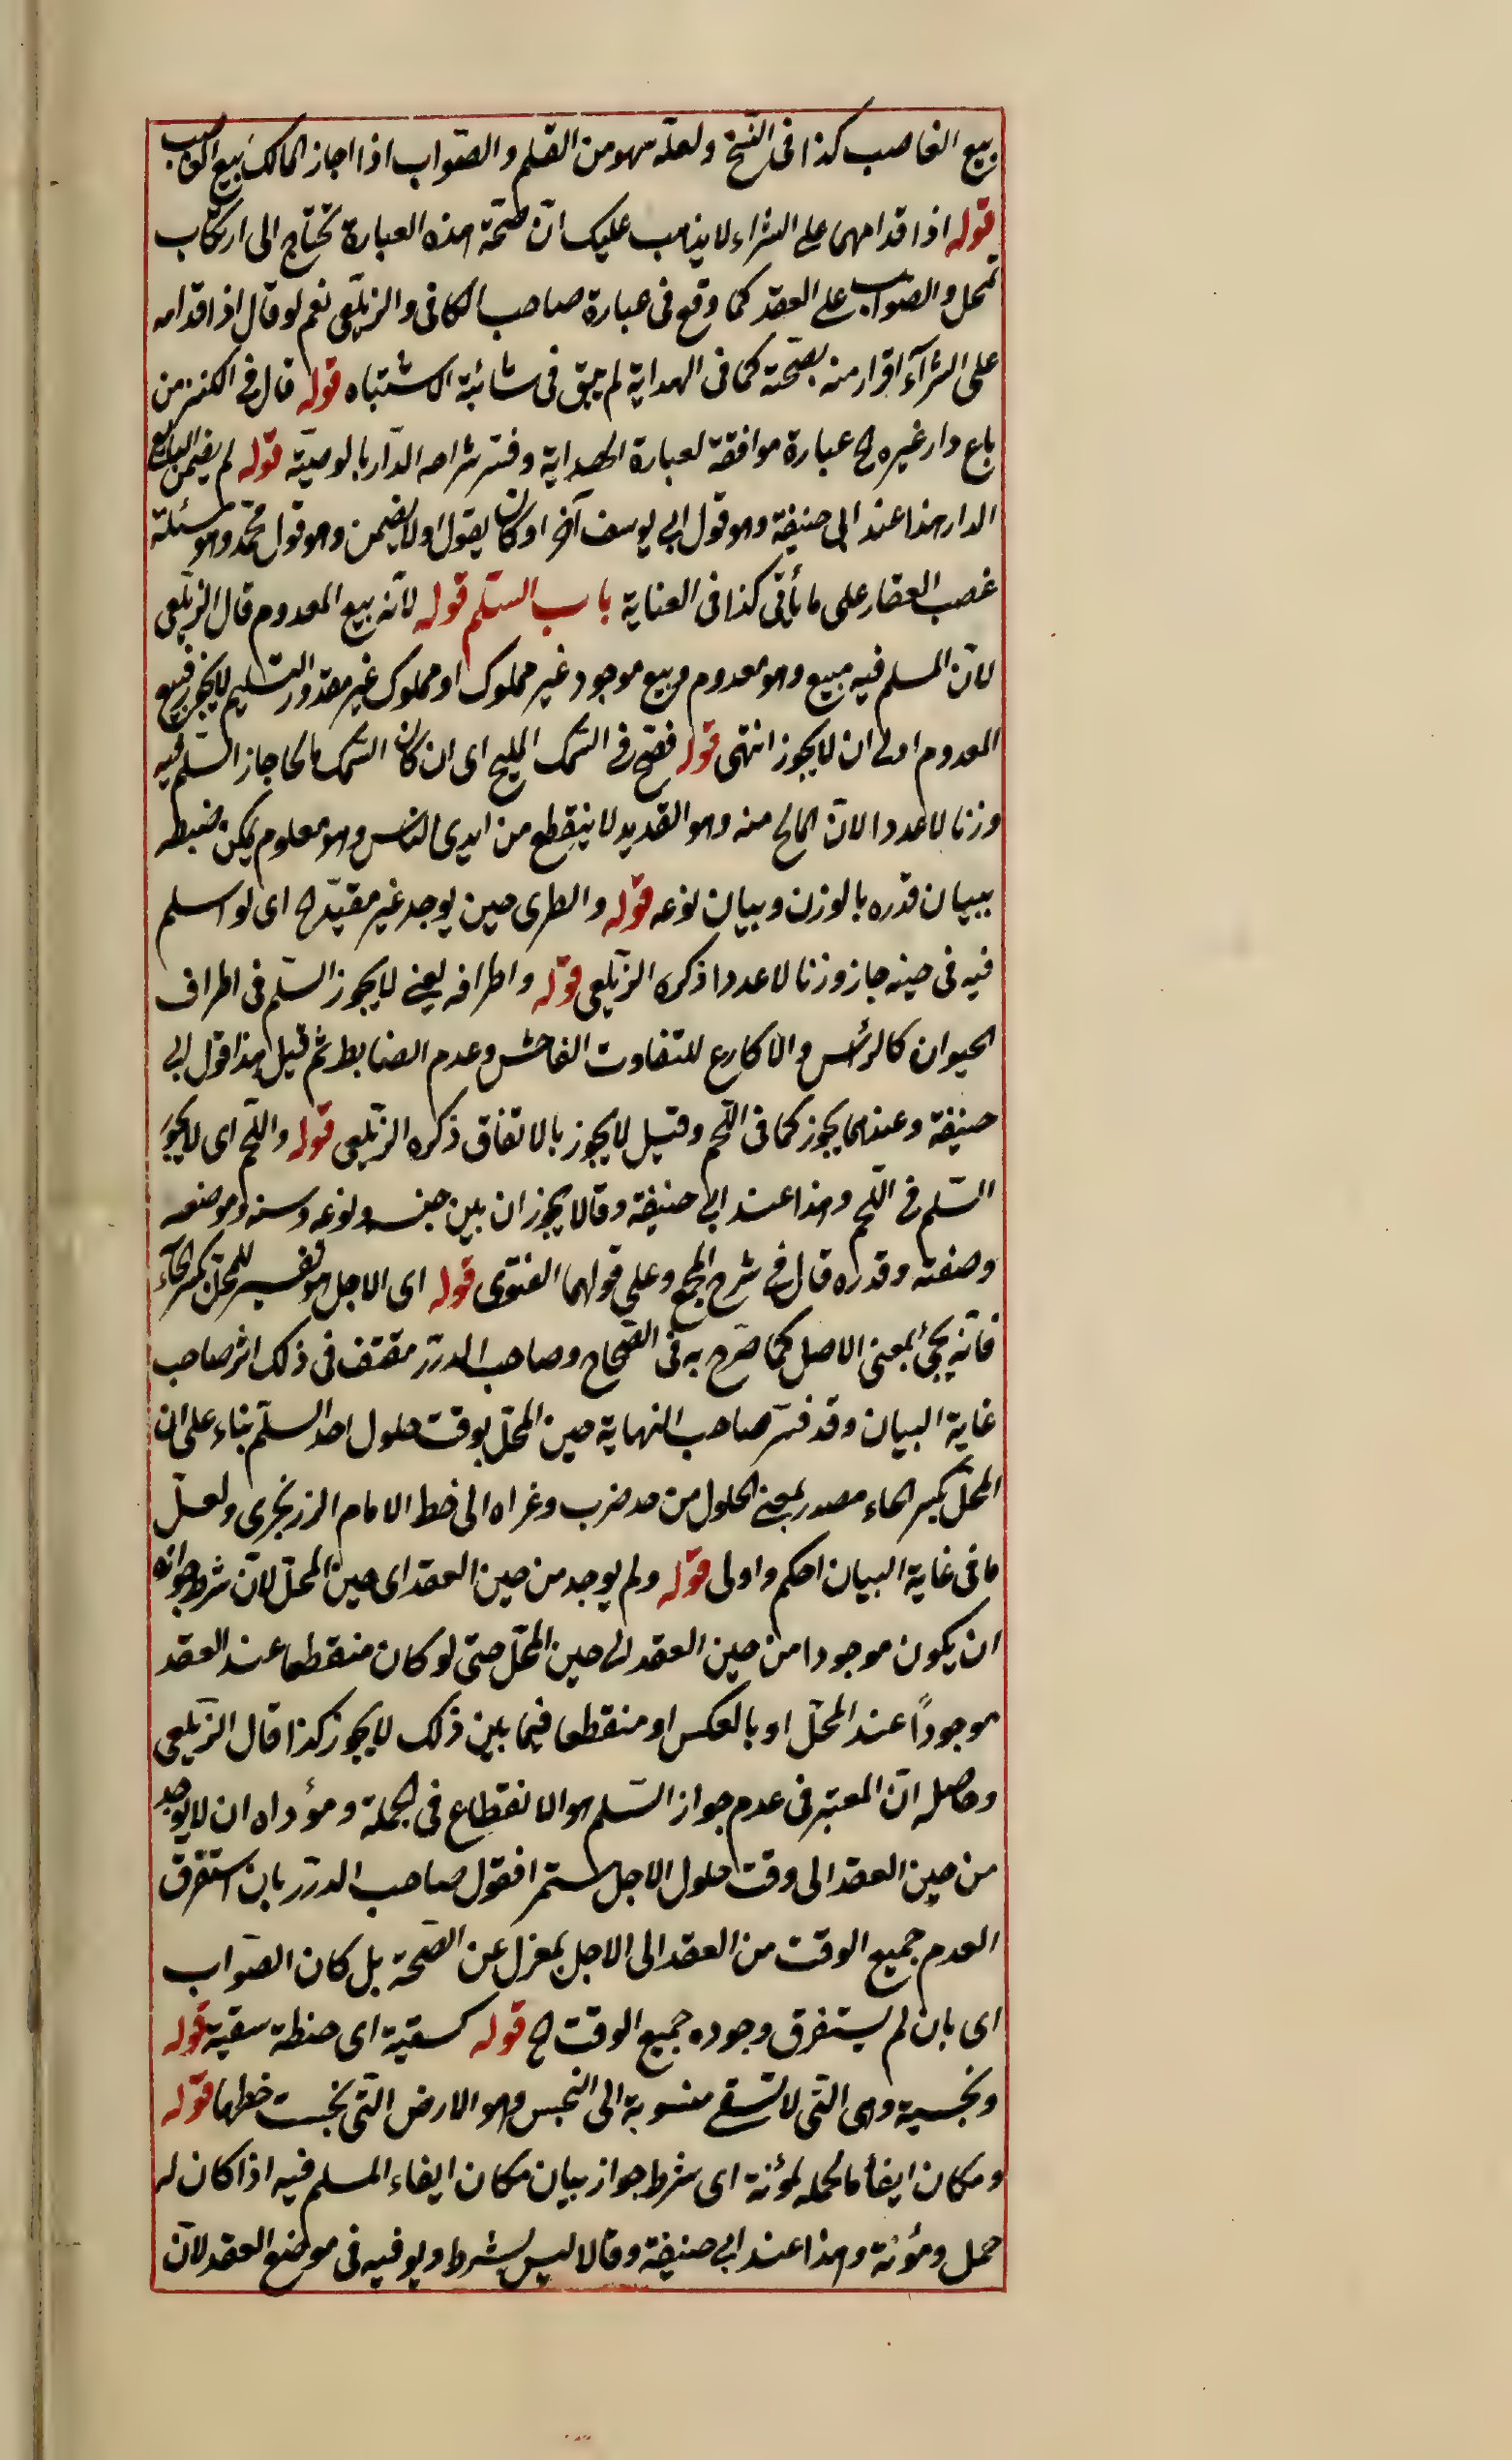 بيع الغاصب كذا فى النسخ ولعله سهو من القلم والصواب اذا اجاز المالك بيع الغاصب
قوله اذا قدامهى على الشراء لا يذهب عليك ان صحة هذه العبارة تحتاج الى ارتكاب
تمحل والصواب على العقد كما وقع فى عبارة صاحب الكافى والزيلعى نعم لو قال اذ اقدامه
على الشرآء اقرار منه بصحته كما فى الهداية لم يبق فى شائبة الاشتباه قوله قال فى الكنز من
باع دار غيره الخ عبارة موافقة لعبارة الهداية وفسر شراحه الدار بالوصية قوله لم يضمن البايع
الدار هذا عند ابى حنيفة وهو قول ابى يوسف آخرا وكان يقول اولا يضمن وهو قول محمد وهو مسئلة
غصب العقار على ما يأتى كذا فى العناية باب السلم قوله لانه بيع المعدوم قال الزيلعى
لان المسلم فيه مبيع وهو معدوم وبيع موجود غير مملوك او مملوك غير مقدور التسليم لا يجوز فبيع
المعدوم اولى ان لا يجوز انتهى قوله فصح فى السمك المليح اى ان كان السمك مالحا جاز السلم فيه
وزنا لا عددا لان المالح منه وهو القديد لا ينقطع من ايدى الناس وهو معلوم يمكن ضبطه
ببيان قدره بالوزن وبيان نوعه قوله والطرى حين يوجد غير مقيد الخ اى لو اسلم
فيه فى حينه جاز وزنا لا عددا ذكره الزيلعى قوله واطرافه يعنى لا يجوز السلم فى اطراف
الحيوان كالرأس والاكارع للتفاوت الفاحش وعدم الضابط ثم قيل هذا قول ابى
حنيفة وعندهما يجوز كما فى اللحم وقيل لا يجوز بالاتفاق ذكره الزيلعى قوله واللحم اى لا يجوز
السلم فى اللحم وهذا عند ابى حنيفة وقالا يجوز ان بين جنسه ونوعه وسنه وموضعه
وصفته وقدره قال فى شرح المجمع وعلى قولهما الفتوى قوله اى الاجل هو تفسير للمحل بكسر الحآء
فانه يجئ بمعنى الاصل كما صرح به فى الصحاح وصاحب الدرر مقتف فى ذلك اثر صاحب
غاية البيان وقد فسر صاحب النهاية حين المحل بوقت حلول احد السلم بناء على ان
المحل بكسر الحاء مصدر بمعنى الحلول من حد ضرب وعزاه الى خط الامام الزرنجرى ولعل
ما فى غاية البيان احكم واولى قوله ولم يوجد من حين العقد اى حين المحل لان شرط جوازه
ان يكون موجودا من حين العقد الى حين المحل حتى لو كان منقطعا عند العقد
موجوداً عند المحل او بالعكس او منقطعا فيما بين ذلك لا يجوز كذا قال الزيلعى
وحاصله ان المعتبر فى عدم جواز السلم هو الانقطاع فى الجملة ومؤداه ان لا يوجد
من حين العقد الى وقت حلول الاجل مستمرا فقول صاحب الدرر بان استغرق
العدم جميع الوقت من العقد الى الاجل بمعزل عن الصحة بل كان الصواب
اى بان لم يستغرق وجوده جميع الوقت الخ قوله كسقية اى حنطة سقية قوله
ونجسية وهى التى لا تسقى منسوبة الى النجس وهو الارض التى نجست خطها قوله
ومكان ايفاء ما لحمله مؤنة اى شرط جواز بيان مكان ايفاء المسلم فيه اذا كان له
حمل ومؤنة وهذا عند ابى حنيفة وقالا ليس بشرط ويوفيه فى موضع العقد لان